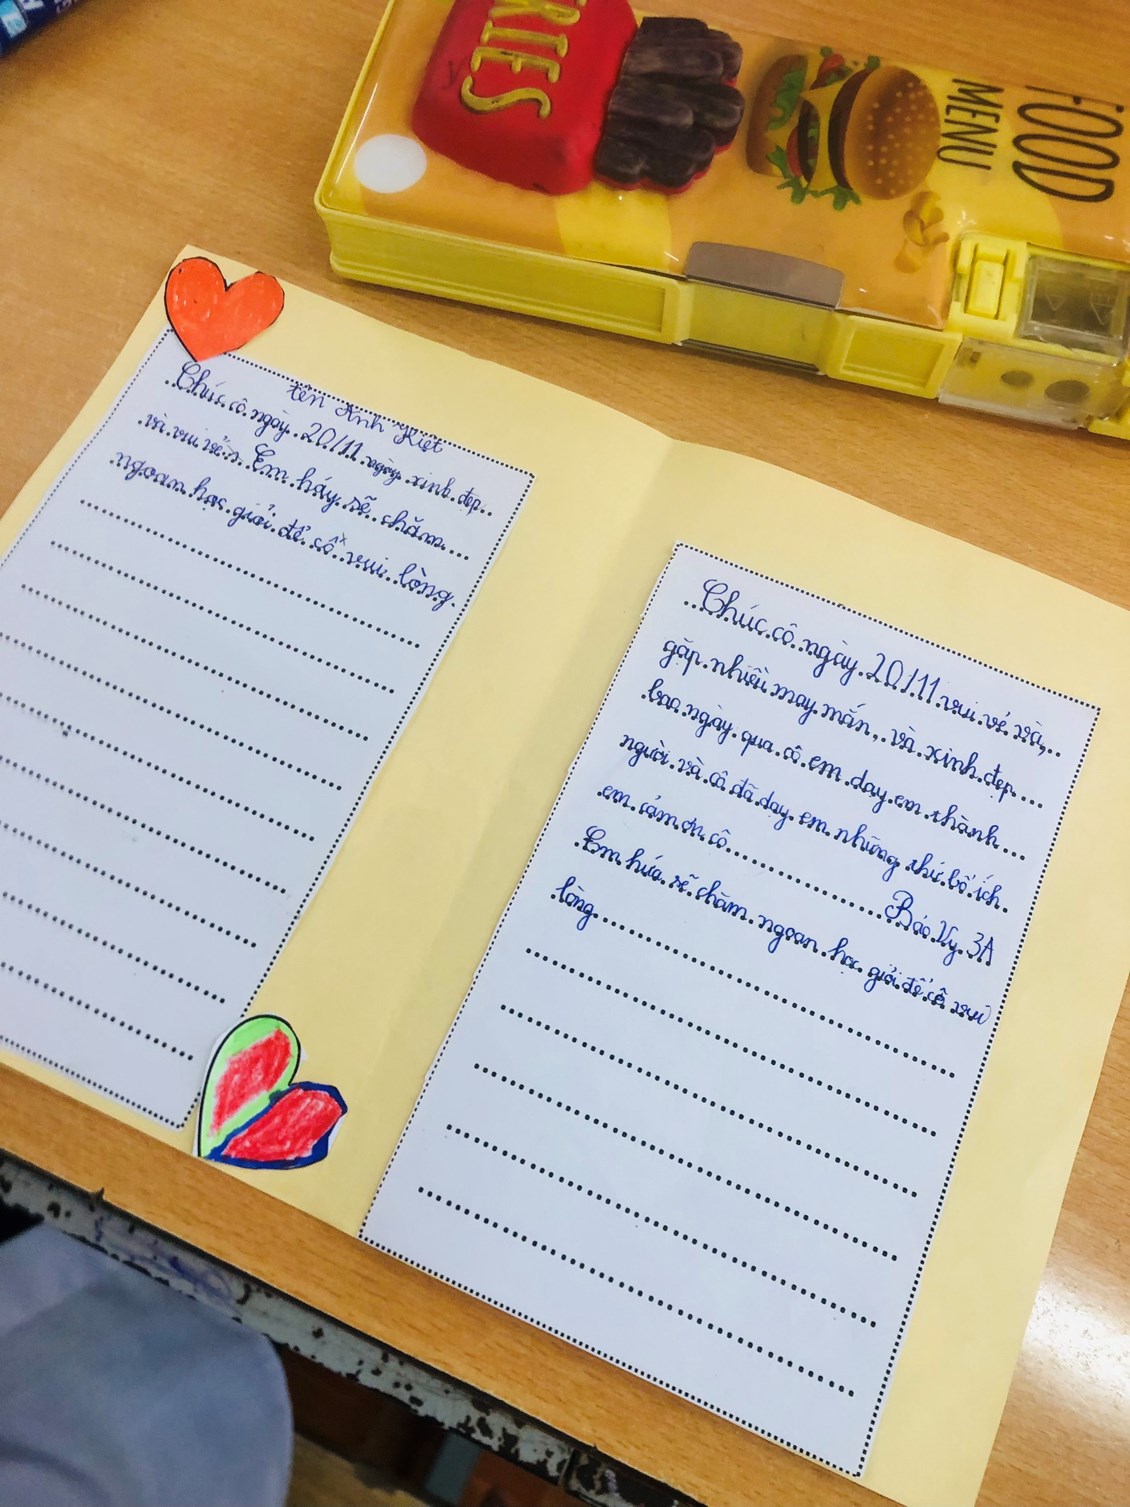 FRIES
FOOD
MENU
tên Anh Kiệt
Chúc cô ngày 20/11 ngày xinh đẹp
và vui vẻ. Em hãy sẽ chăm
ngoan học giỏi để cô vui lòng.
Chúc cô ngày 20/11 vui vẻ và
gặp nhiều may mắn, và xinh đẹp
bao ngày qua cô em dạy em thành
người và cô đã dạy em những thứ bổ ích
em cảm ơn cô
Bảo Vy 3A
Em hứa sẽ chăm ngoan học giỏi để cô vui
lòng